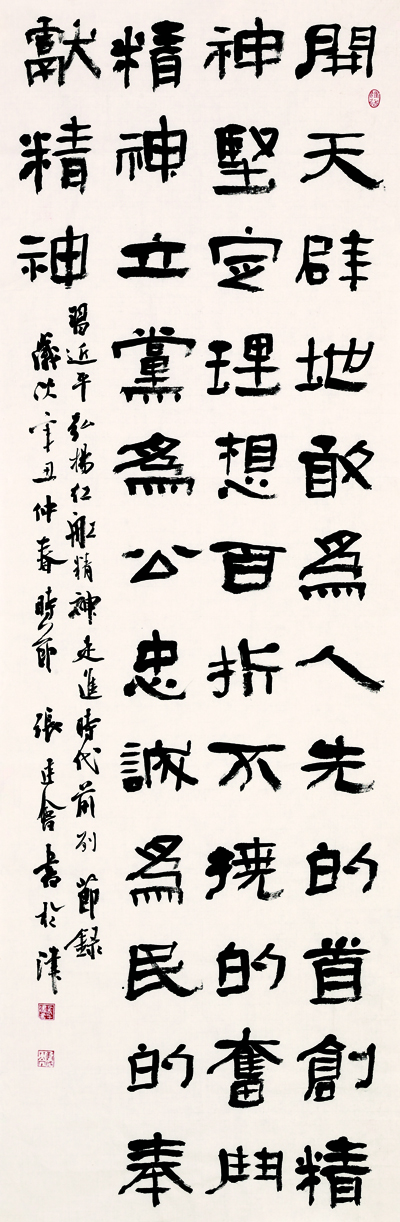 開天辟地敢爲人先的首創精
神堅定理想百折不撓的奮鬥
精神立黨爲公忠誠爲民的奉
獻精神
習近平弘揚紅船精神走進時代前列節録
歲次辛丑仲春時節張建會書於津